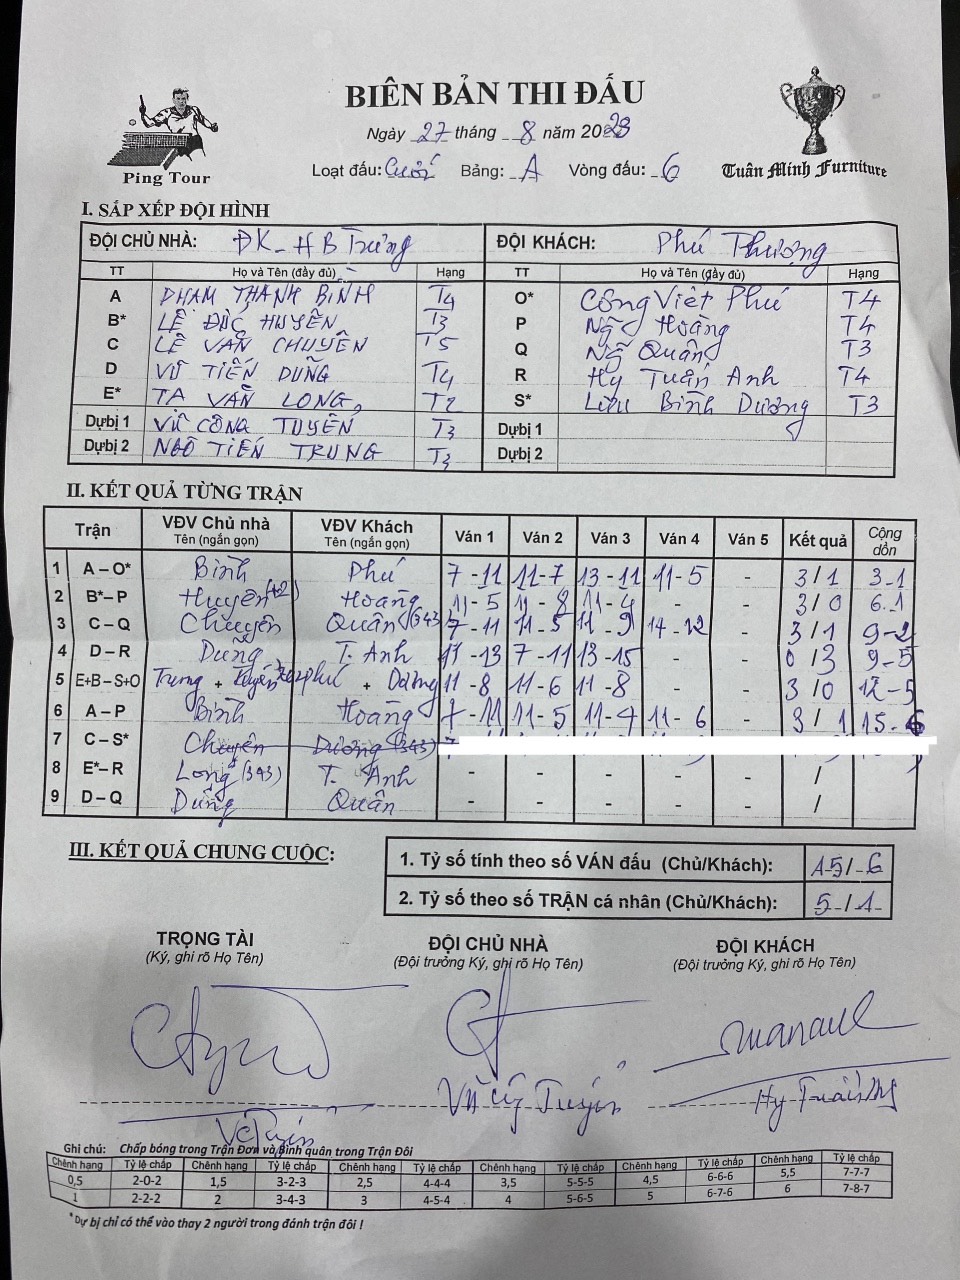 BIÊN BẢN THI ĐẤU
Ngày 27 tháng 8 năm 2023
Loạt đấu: Cuối Bảng: A Vòng đấu: 6
Ping Tour
Tuân Minh Furniture
I. SẮP XẾP ĐỘI HÌNH
ĐỘI CHỦ NHÀ: ĐK-HB Trưng ĐỘI KHÁCH: Phú Thượng
TT Họ và Tên (đầy đủ) Hạng TT Họ và Tên (đầy đủ) Hạng
A PHẠM THANH BÌNH T4 O* Công Việt Phú T4
B* LÊ ĐỨC HUYÊN T3 P Ngỹ Hoàng T4
C LÊ VĂN CHUYÊN T5 Q Ngỹ Quân T3
D VŨ TIẾN DŨNG T4 R Hy Tuấn Anh T4
E* TẠ VĂN LONG T2 S* Lưu Bình Dương T3
Dự bị 1 VŨ CÔNG TUYÊN T3 Dự bị 1
Dự bị 2 NGÔ TIẾN TRUNG T3 Dự bị 2
II. KẾT QUẢ TỪNG TRẬN
Trận VĐV Chủ nhà Tên (ngắn gọn) VĐV Khách Tên (ngắn gọn) Ván 1 Ván 2 Ván 3 Ván 4 Ván 5 Kết quả Cộng dồn
1 A – O* Bình Phú 7 - 11 11 - 7 13 - 11 11 - 5 - 3 / 1 3-1
2 B* – P Huyên Hoàng 11 - 5 11 - 8 11 - 4 - - 3 / 0 6-1
3 C – Q Chuyên Quân (343) 7 - 11 11 - 5 11 - 9 14 - 12 - 3 / 1 9-2
4 D – R Dũng T. Anh 11 - 13 7 - 11 13 - 15 - - 0 / 3 9-5
5 E+B – S+O Trung + Phú + Dương 11 - 8 11 - 6 11 - 8 - - 3 / 0 12-5
6 A – P Bình Hoàng 7 - 11 11 - 5 11 - 4 11 - 6 - 3 / 1 15-6
7 C – S* Chuyên Dương (343)
8 E* – R Long (343) T. Anh - - - - - /
9 D – Q Dũng Quân - - - - - /
III. KẾT QUẢ CHUNG CUỘC:
1. Tỷ số tính theo số VÁN đấu (Chủ/Khách): 15 / 6
2. Tỷ số theo số TRẬN cá nhân (Chủ/Khách): 5 / 1
TRỌNG TÀI ĐỘI CHỦ NHÀ ĐỘI KHÁCH
(Ký, ghi rõ Họ Tên) (Đội trưởng Ký, ghi rõ Họ Tên) (Đội trưởng Ký, ghi rõ Họ Tên)
Ghi chú: Chấp bóng trong Trận Đơn và Bình quân trong Trận Đôi
Chênh hạng Tỷ lệ chấp Chênh hạng Tỷ lệ chấp Chênh hạng Tỷ lệ chấp Chênh hạng Tỷ lệ chấp Chênh hạng Tỷ lệ chấp Chênh hạng Tỷ lệ chấp
0,5 2-0-2 1,5 3-2-3 2,5 4-4-4 3,5 5-5-5 4,5 6-6-6 5,5 7-7-7
1 2-2-2 2 3-4-3 3 4-5-4 4 5-6-5 5 6-7-6 6 7-8-7
*Dự bị chỉ có thể vào thay 2 người trong đánh trận đôi !